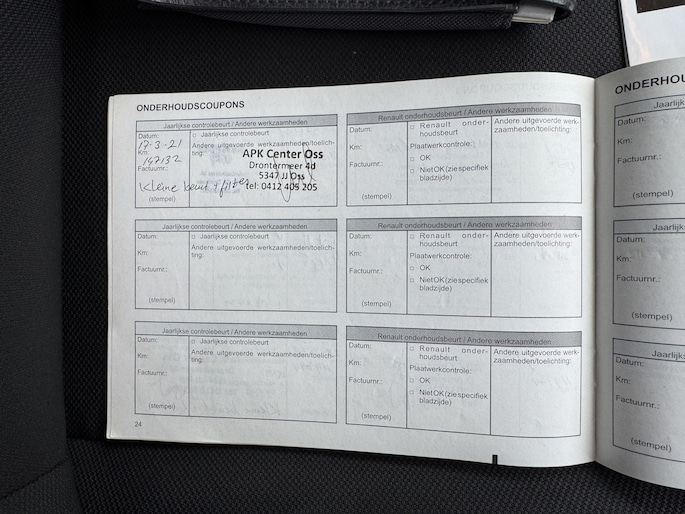 ONDERHOUDSCOUPONS
Jaarlijkse controlebeurt / Andere werkzaamheden
Datum:
17-3-21
Km:
147132
Factuurnr.:
□ Jaarlijkse controlebeurt
Andere uitgevoerde werkzaamheden/toelich-
ting:
APK Center Oss
Drontermeer 4d
5347 JJ Oss
tel: 0412 405 205
Kleine beurt + filter
(stempel)
Renault onderhoudsbeurt / Andere werkzaamheden
Datum:
Km:
Factuurnr.:
(stempel)
□ Renault onder-
houdsbeurt
Plaatwerkcontrole:
□ OK
□ Niet OK (zie specifiek
bladzijde)
Andere uitgevoerde werk-
zaamheden/toelichting:
Jaarlijkse controlebeurt / Andere werkzaamheden
Datum:
Km:
Factuurnr.:
(stempel)
□ Jaarlijkse controlebeurt
Andere uitgevoerde werkzaamheden/toelich-
ting:
Renault onderhoudsbeurt / Andere werkzaamheden
Datum:
Km:
Factuurnr.:
(stempel)
□ Renault onder-
houdsbeurt
Plaatwerkcontrole:
□ OK
□ Niet OK (zie specifiek
bladzijde)
Andere uitgevoerde werk-
zaamheden/toelichting:
Jaarlijkse controlebeurt / Andere werkzaamheden
Datum:
Km:
Factuurnr.:
(stempel)
□ Jaarlijkse controlebeurt
Andere uitgevoerde werkzaamheden/toelich-
ting:
Renault onderhoudsbeurt / Andere werkzaamheden
Datum:
Km:
Factuurnr.:
(stempel)
□ Renault onder-
houdsbeurt
Plaatwerkcontrole:
□ OK
□ Niet OK (zie specifiek
bladzijde)
Andere uitgevoerde werk-
zaamheden/toelichting:
24
ONDERHOU
Jaarlijk
Datum:
Km:
Factuurnr.:
(stempel)
Jaarlijk
Datum:
Km:
Factuurnr.:
(stempel)
Jaarlijk
Datum:
Km:
Factuurnr.:
(stempel)